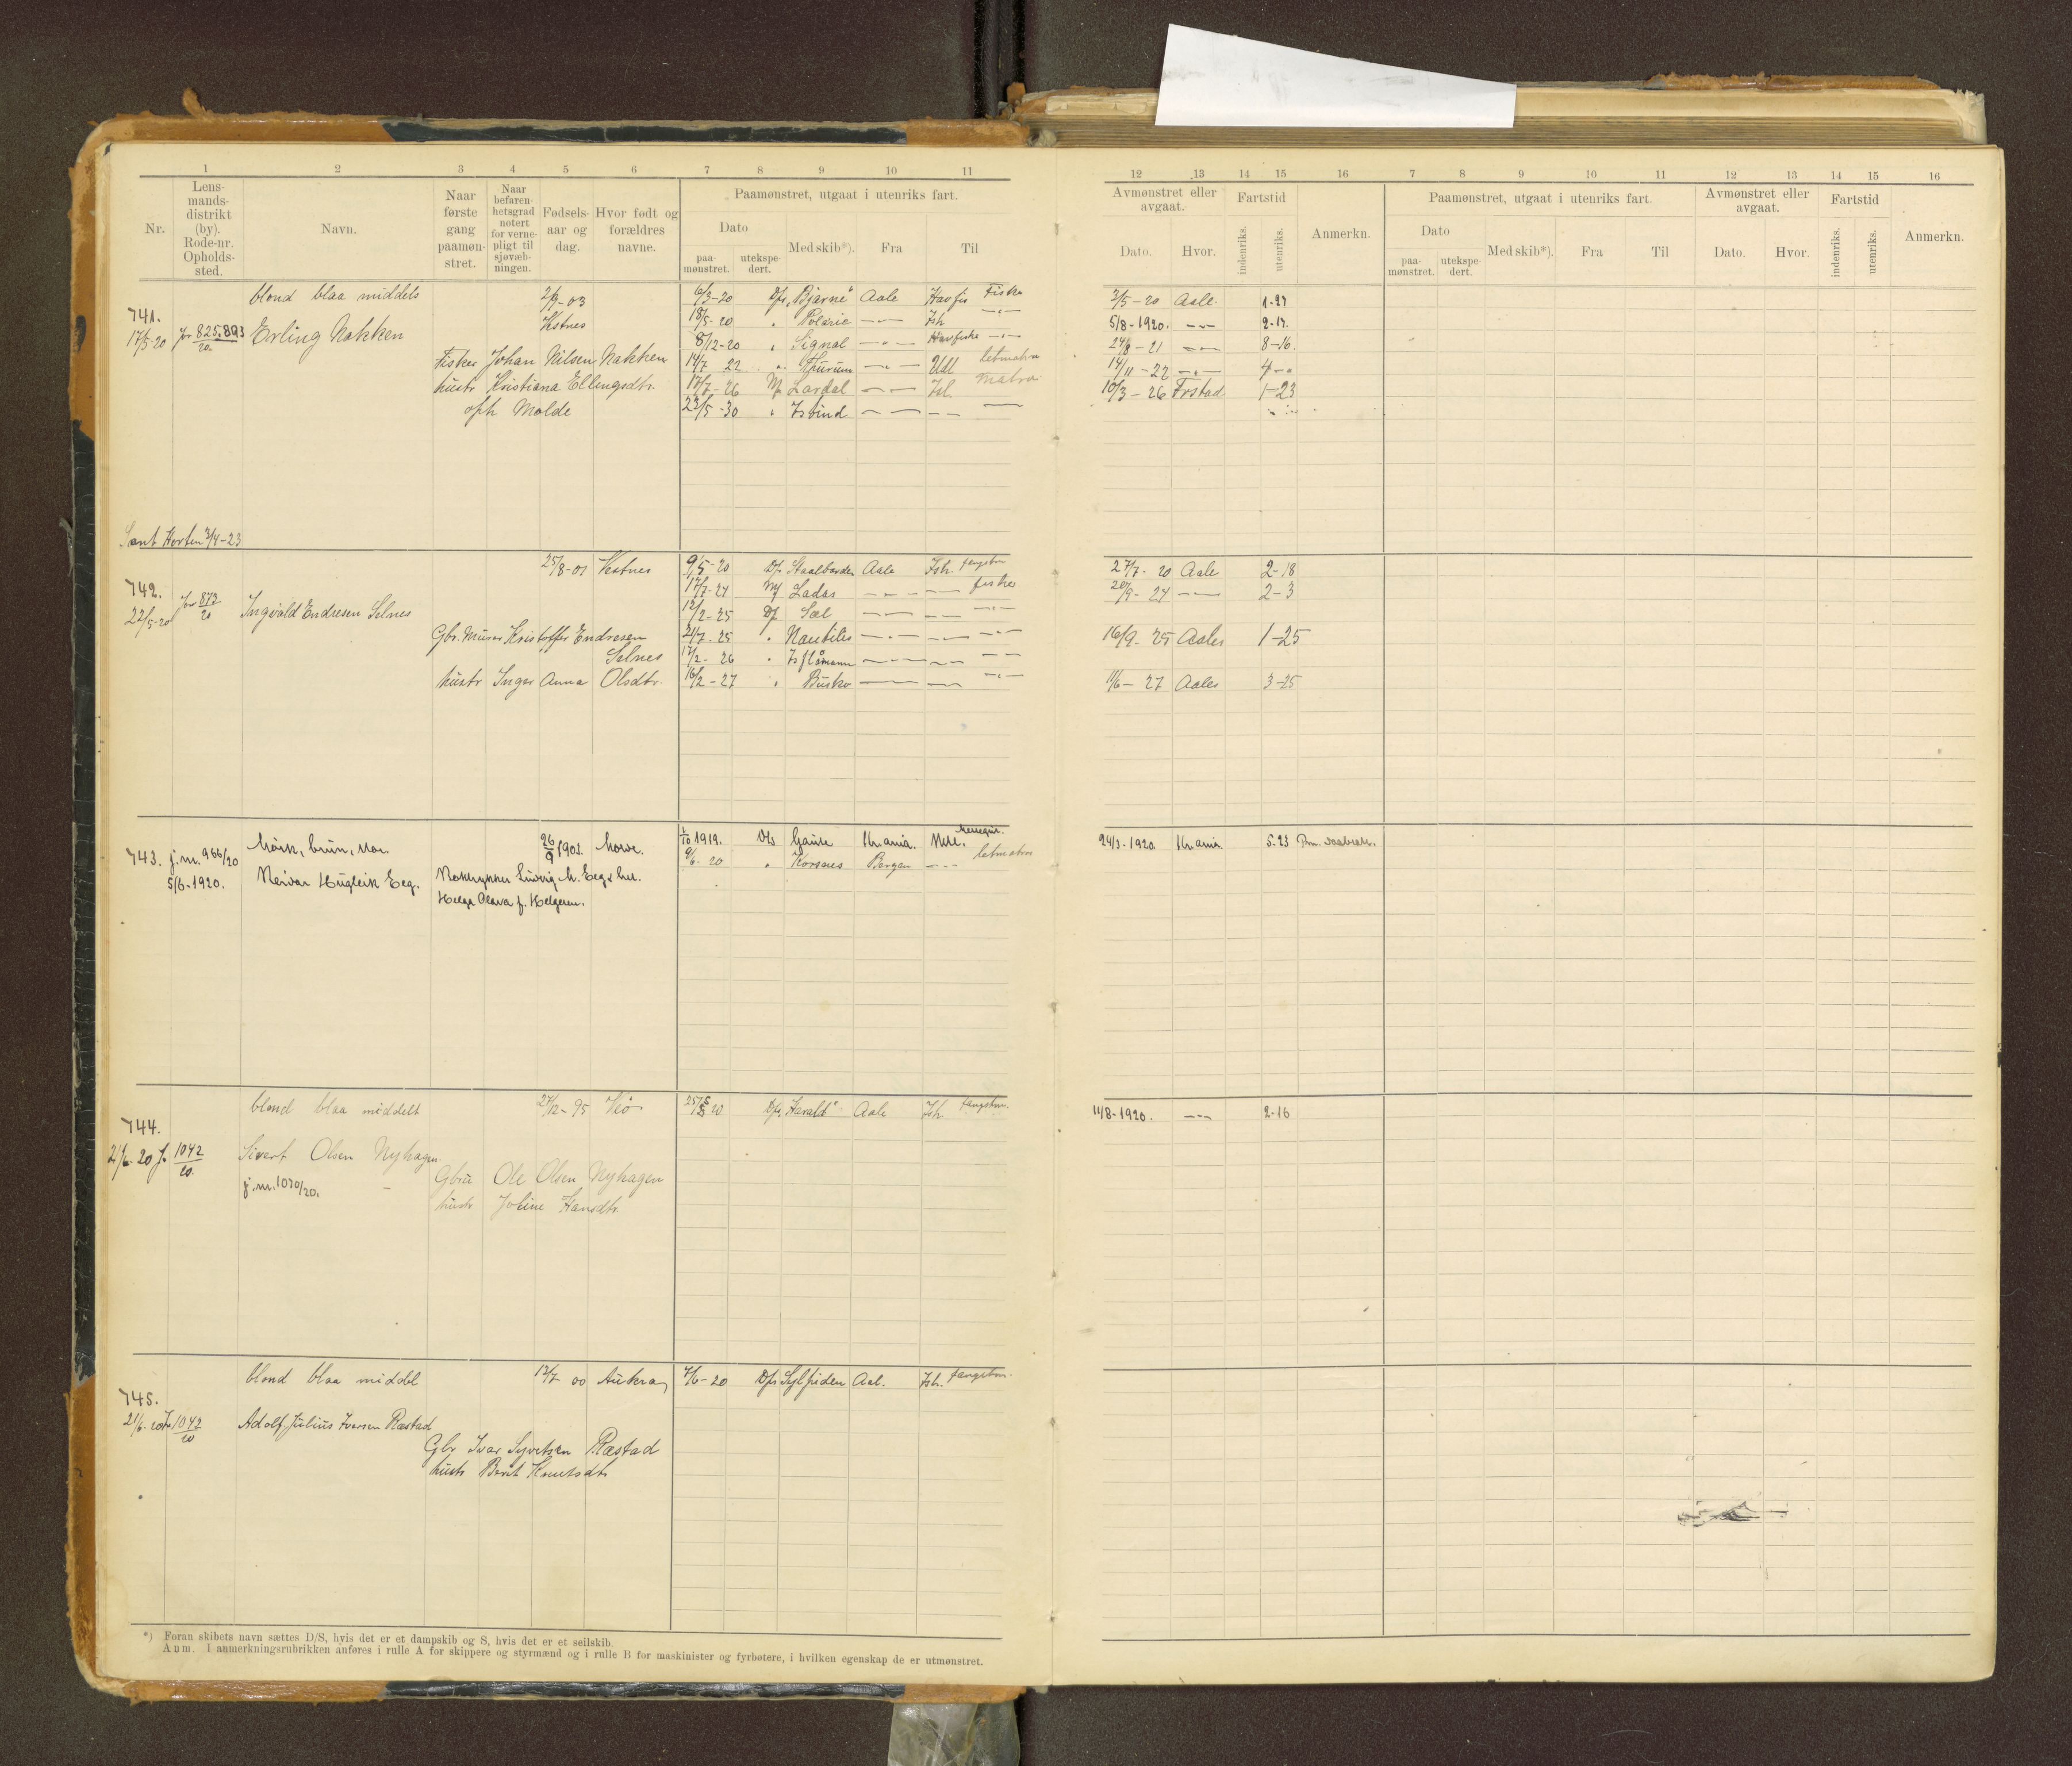 1 2 3 4 5 6 7 8 9 10 11
Nr. Lensmandsdistrikt (by). Rode-nr. Opholdssted. Navn. Naar første gang paamønstret. Naar befarenhetsgrad notert for vernepligt til sjøvæbningen. Fødselsaar og dag. Hvor født og forældres navne. Paamønstret, utgaat i utenriks fart.
Dato Med skib*). Fra Til
paamønstret. utekspedert.
12 13 14 15 16 7 8 9 10 11 12 13 14 15 16
Avmønstret eller avgaat. Fartstid Anmerkn. Paamønstret, utgaat i utenriks fart. Avmønstret eller avgaat. Fartstid Anmerkn.
Dato. Hvor. indenriks. utenriks. Dato Med skib*). Fra Til Dato. Hvor. indenriks. utenriks.
paamønstret. utekspedert.
blond blaa middels 2/9-03 6/3-20 D/s „Bjarne" Aale Havfis Fisker 3/5-20 Aale. 1-27
741. Kstnes 18/5-20 " Polaric Ish 5/8-1920. 2-17.
17/5-20 jr 825.893/20. Erling Nakken 8/12-20 " Signal Havfiske 24/8-21 8-16.
Fisker Johan Nilsen Nakken 14/7 22 " Hurum Udl letmatro 14/11-22 4--
hustr Kristiana Ellingsdtr. 17/7-26 M/ Lardal Isl matro 10/3-26 Frstad 1-23
oph Molde 23/5-30 " Isbind
Sent Horten 3/4-23
25/8-01 Kstnes 9/5-20 D/s Staalbarden Aale Ish. fangstm 27/7-20 Aale 2-18
742. 17/7-24 M/ Ladas fisker 20/9-24 2-3
22/5-20 jnr 873/20 Ingvald Endresen Selnes 12/2-25 D/ Sæl
Gbr. Murer Kristoffer Endresen 21/7-25 " Nautilus 16/9-25 Aales 1-25
Selnes 17/2-26 " Isflåmann
hustr Inger Anna Olsdtr. 16/2-27 " Busko 11/6-27 Aales 3-25
Mørk, brun, stor 26/9 1901. 1/10 1919. D/s Gause Kr.ania. 24/3-1920. Kr.ania. 5-23
743. j.nr. 966/20 9/6-20 " Korsnes Bergen letmatros
5/6-1920. Reidar Hugleik Eeg. Ludvig M. Eeg &
Helga Olava f. Helgesen.
blond blaa middelt 27/12-95 Veø 25/5 20 D/s „Harald" Aale Ish. fangstm. 11/8-1920. 2-16
744.
21/6-20 j. 1042/20. Sivert Olsen Nyhagen
j.nr. 1070/20. Gbru Ole Olsen Nyhagen
hustr Joline Hansdtr.
blond blaa middel 17/7 00 Aukra 7/6-20 D/s Sylfiden Aal. Ish. fangstm.
745.
21/6-20 Jn 1042/20 Adolf Julius Iversen Ræstad
Gbr Ivar Syvertsen Ræstad
hustr Berit Knutsdtr
*) Foran skibets navn sættes D/S, hvis det er et dampskib og S, hvis det er et seilskib.
Anm. I anmerkningsrubrikken anføres i rulle A for skippere og styrmænd og i rulle B for maskinister og fyrbøtere, i hvilken egenskap de er utmønstret.